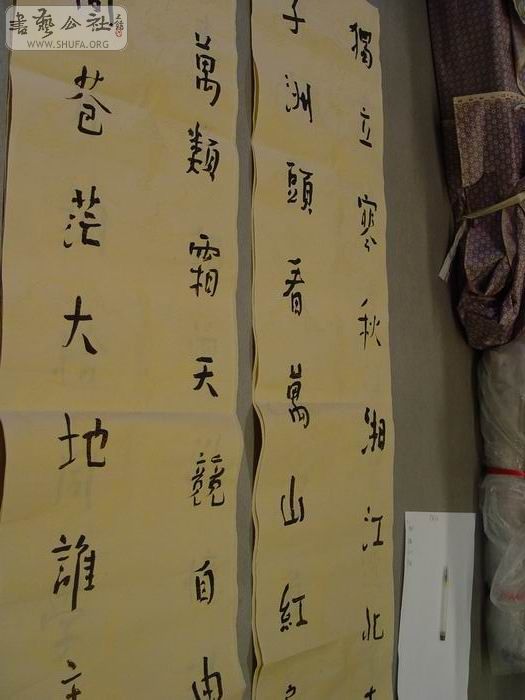 書藝公社
WWW.SHUFA.ORG
獨立寒秋湘江北
子洲頭看萬山紅
萬類霜天競自由
苍茫大地誰主